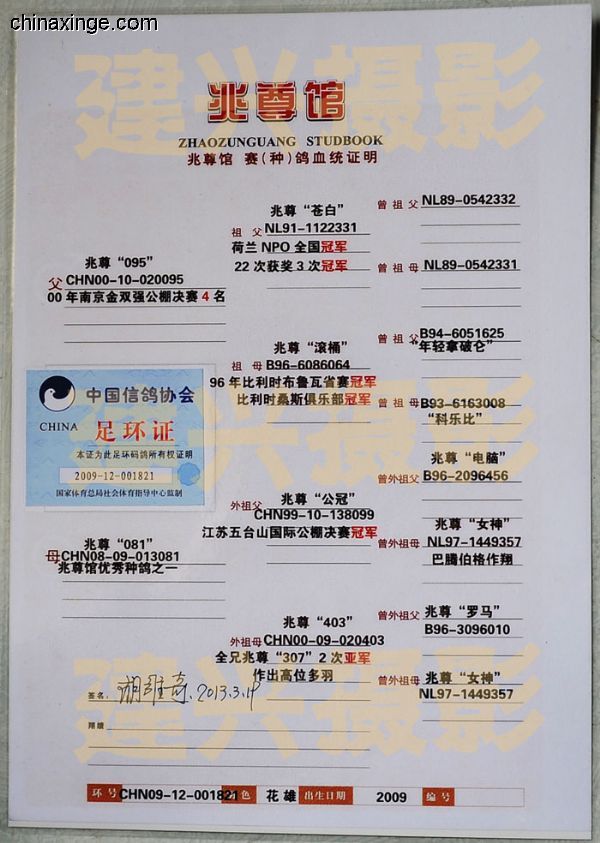 chinaxinge.com
建兴摄影
兆尊馆
ZHAOZUNGUANG STUDBOOK
兆尊馆 赛(种)鸽血统证明
兆尊“095”
父 CHN00-10-020095
00年南京金双强公棚决赛4名
兆尊“苍白”
祖父 NL91-1122331
荷兰NPO全国冠军
22次获奖3次冠军
曾祖父 NL89-0542332
曾祖母 NL89-0542331
兆尊“滚桶”
祖母 B96-6086064
96年比利时布鲁瓦省赛冠军
比利时桑斯俱乐部冠军
曾祖父 B94-6051625
“年轻拿破仑”
曾祖母 B93-6163008
“科乐比”
中国信鸽协会
CHINA 足环证
本证为此足环码鸽所有权证明
2009-12-001821
国家体育总局社会体育指导中心监制
兆尊“081”
母 CHN08-09-013081
兆尊馆优秀种鸽之一
兆尊“公冠”
外祖父 CHN99-10-138099
江苏五台山国际公棚决赛冠军
兆尊“电脑”
曾外祖父 B96-2096456
兆尊“女神”
曾外祖母 NL97-1449357
巴腾伯格作翔
兆尊“403”
外祖母 CHN00-09-020403
全兄兆尊“307”2次亚军
作出高位多羽
兆尊“罗马”
曾外祖父 B96-3096010
兆尊“女神”
曾外祖母 NL97-1449357
签名: 2013.3.19
翔绩
建兴摄影
建兴摄影
环号 CHN09-12-001821 色 花 雄 出生日期 2009 编号